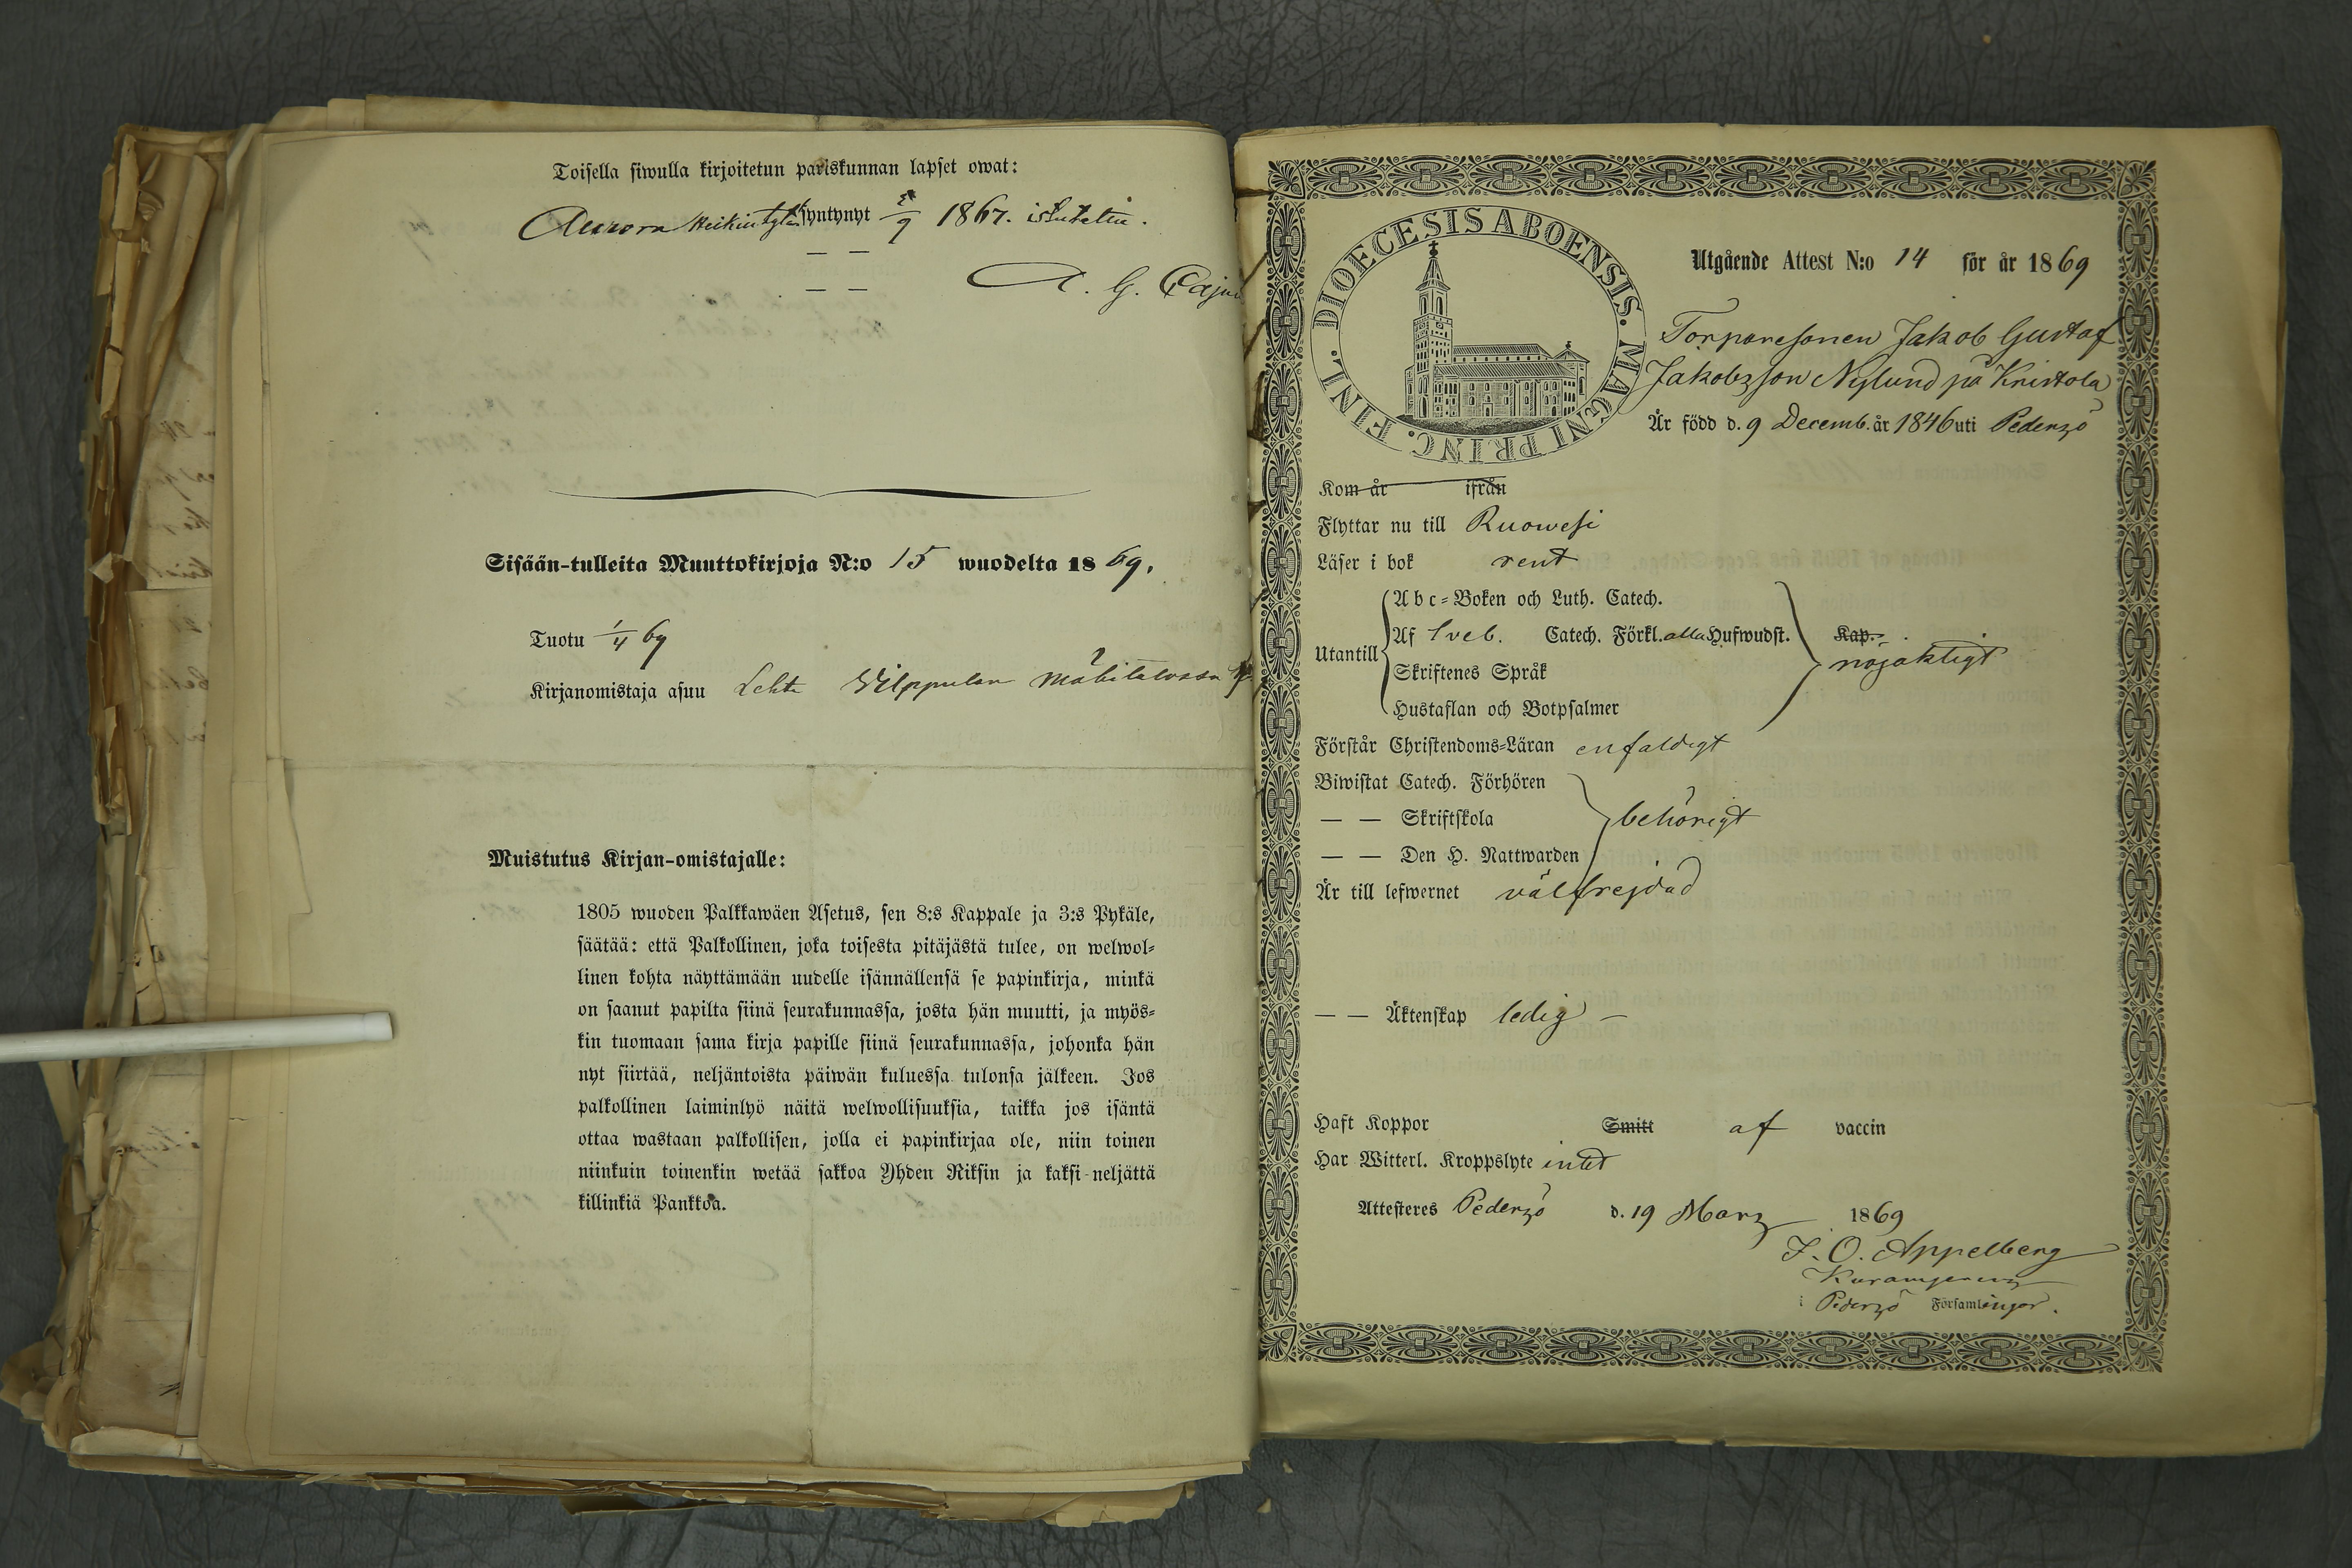 Toisella siwulla kirjoitetun pariskunnan lapset owat:
Aurora Heikint. syntynyt 1867. istutettu.
— —
— —
A. G.
Sisään-tulleita Muuttokirjoja N:o 15 wuodelta 1869.
Tuotu 1/4 69
Kirjanomistaja asuu Lehti Wilppulan
Muistutus Kirjan-omistajalle:
1805 wuoden Palkkawäen Asetus, sen 8:s Kappale ja 3:s Pykäle,
säätää: että Palkollinen, joka toisesta pitäjästä tulee, on welwol-
linen kohta näyttämään uudelle isännällensä se papinkirja, minkä
on saanut papilta siinä seurakunnassa, josta hän muutti, ja myös-
kin tuomaan sama kirja papille siinä seurakunnassa, johonka hän
nyt siirtää, neljäntoista päiwän kuluessa tulonsa jälkeen. Jos
palkollinen laiminlyö näitä welwollisuuksia, taikka jos isäntä
ottaa wastaan palkollisen, jolla ei papinkirjaa ole, niin toinen
niinkuin toinenkin wetää sakkoa Yhden Riksin ja kaksi-neljättä
killinkiä Pankkoa.
DIOECESIS ABOENSIS. MAGNI PRINC. FINL.
Utgående Attest N:o 14 för år 1869
Torparesonen Jakob Gustaf
Jakobsson Nylund på Kristola
Är född d. 9 Decemb. år 1846 uti Pedersö
Kom år ifrån
Flyttar nu till Ruowesi
Läser i bok rent
Utantill
Abc-Boken och Luth. Catech.
Af Sveb. Catech. Förkl. alla Hufwudst. Kap.
Skriftenes Språk
nöjaktigt
Hustaflan och Botpsalmer
Förstår Christendoms-Läran enfaldigt
Biwistat Catech. Förhören
— — Skriftskola behörigt
— — Den H. Nattwarden
Är till lefwernet välfrejdad
— — Äktenskap ledig —
Haft Koppor Smitt af vaccin
Har Witterl. Kroppslyte intet
Attesteres Pedersö d. 19 Mars 1869
F. O. Appelberg
i Pedersö Församlingar.